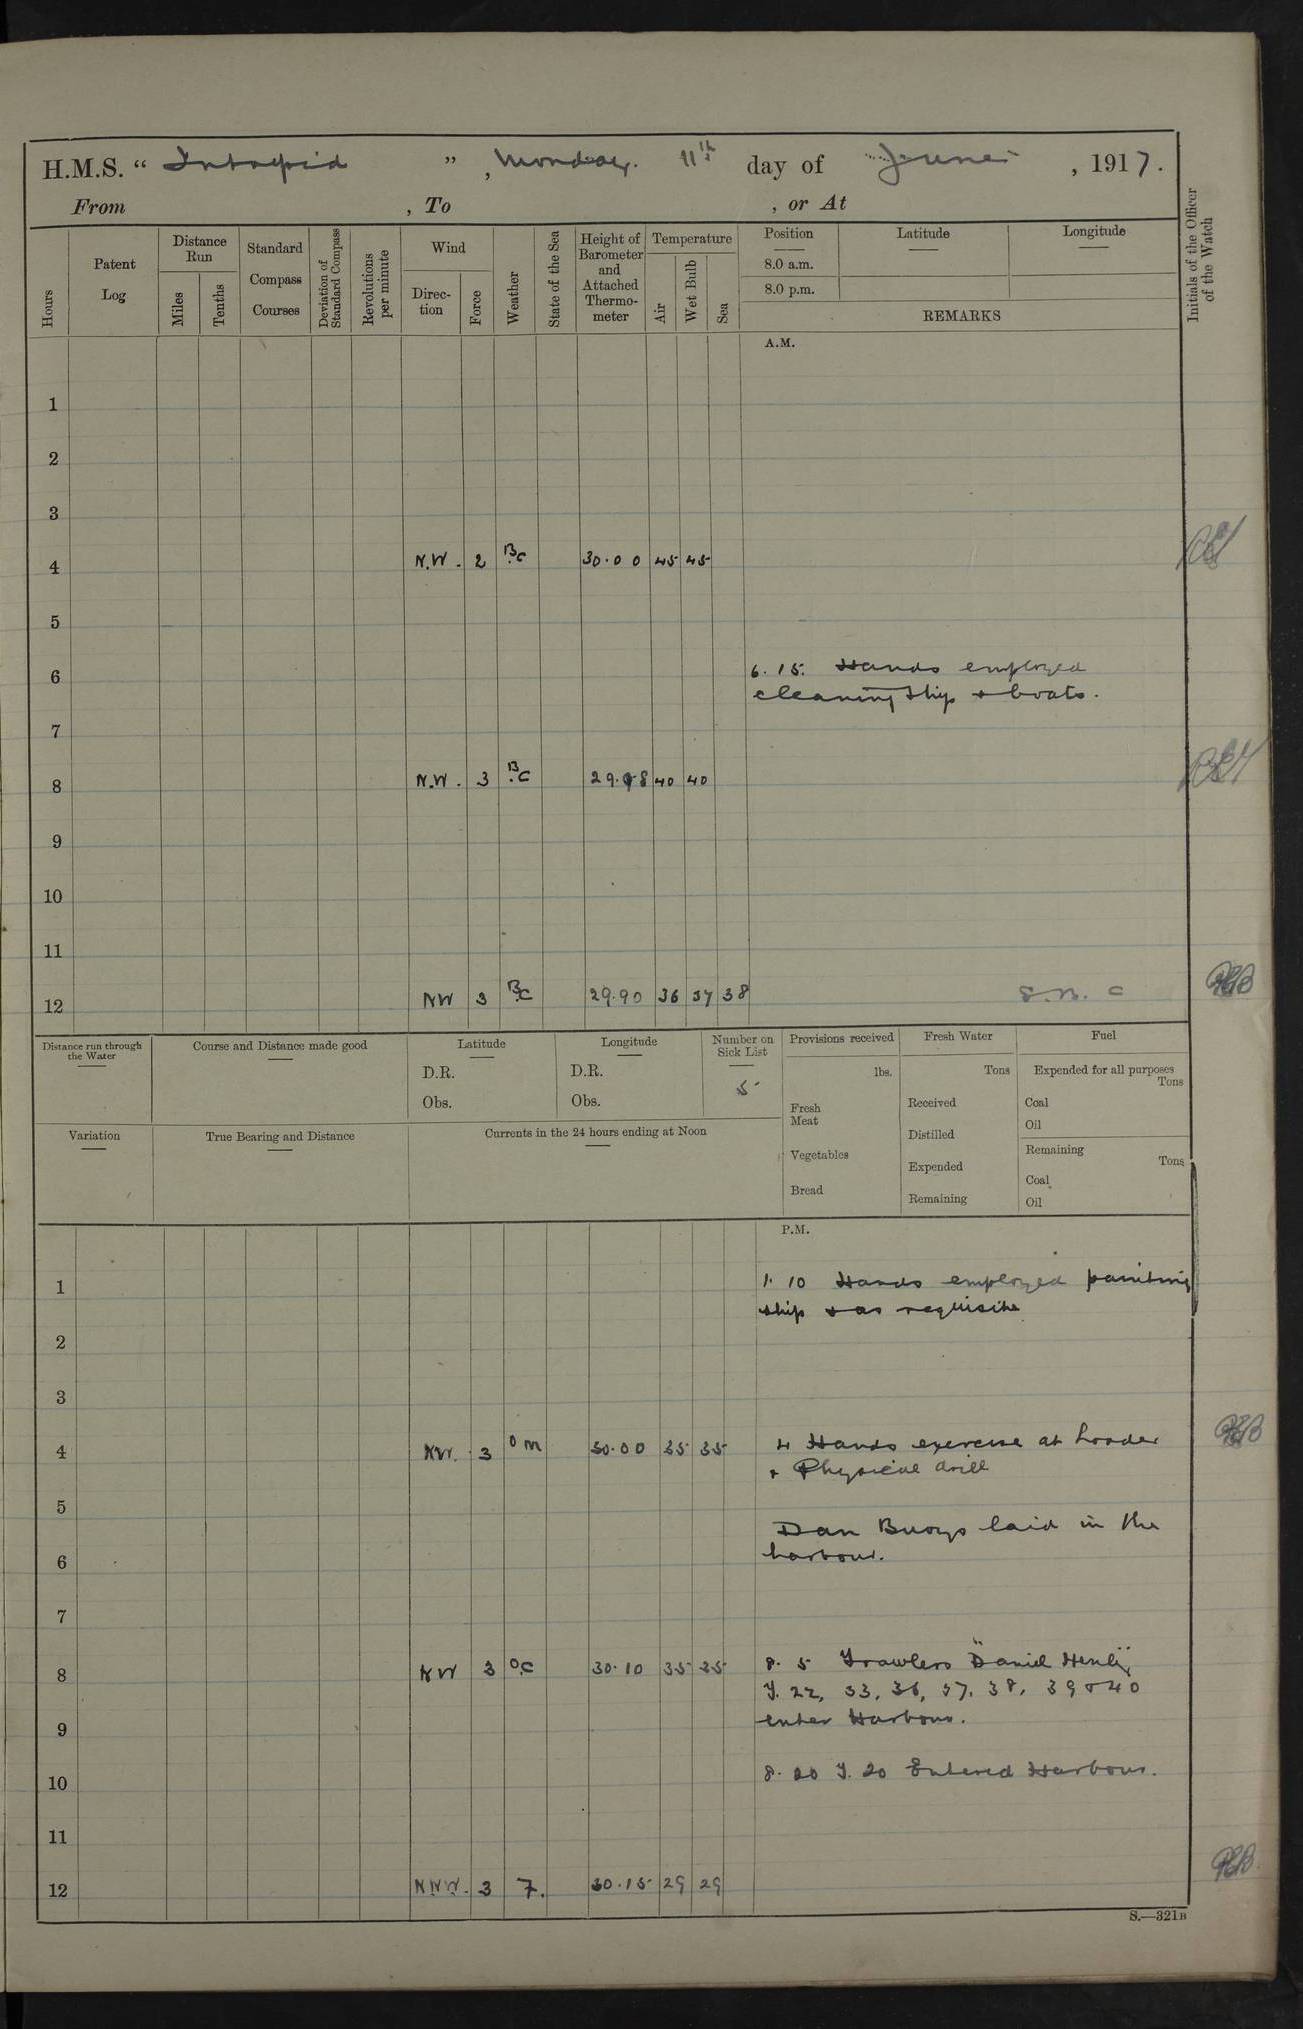 H.M.S. “ Intrepid ” , Monday. 11th day of June , 1917.
From , To , or At
Hours Patent Log Distance Run Miles Tenths Standard Compass Courses Deviation of Standard Compass Revolutions per minute Wind Direc-tion Force Weather State of the Sea Height of Barometer and Attached Thermo-meter Temperature Air Wet Bulb Sea Position Latitude Longitude Initials of the Officer of the Watch
8.0 a.m.
8.0 p.m.
REMARKS
A.M.
1
2
3
4 N.W. 2 B.c 30.00 45 45
5
6 6.15. Hands employed
cleaning ship + boats.
7
8 N.W. 3 B.C 29.98 40 40
9
10
11
12 NW 3 B.C 29.90 36 37 38
Distance run through the Water Course and Distance made good Latitude Longitude Number on Sick List Provisions received Fresh Water Fuel
D.R. D.R. lbs. Tons Expended for all purposes Tons
Obs. Obs. 5 Fresh Meat Received Coal
Distilled Oil
Variation True Bearing and Distance Currents in the 24 hours ending at Noon
Vegetables Expended Remaining Tons
Coal
Bread Remaining Oil
P.M.
1 1.10 Hands employed painting
ship + as requisite
2
3
4 NW. 3 o m 30.00 35 35 4 Hands exercise at
+ Physical drill
5
Dan Buoys laid in the
6 harbour.
7
8 NW 3 O.C 30.10 35 35 8.5 Trawlers "Daniel Henley"
T. 22, 33, 36, 37, 38, 39 + 40
enter Harbour.
9
10 8.20 T. 20 Entered Harbour.
11
12 NNW. 3 7. 30.15 29 29
S.—321B